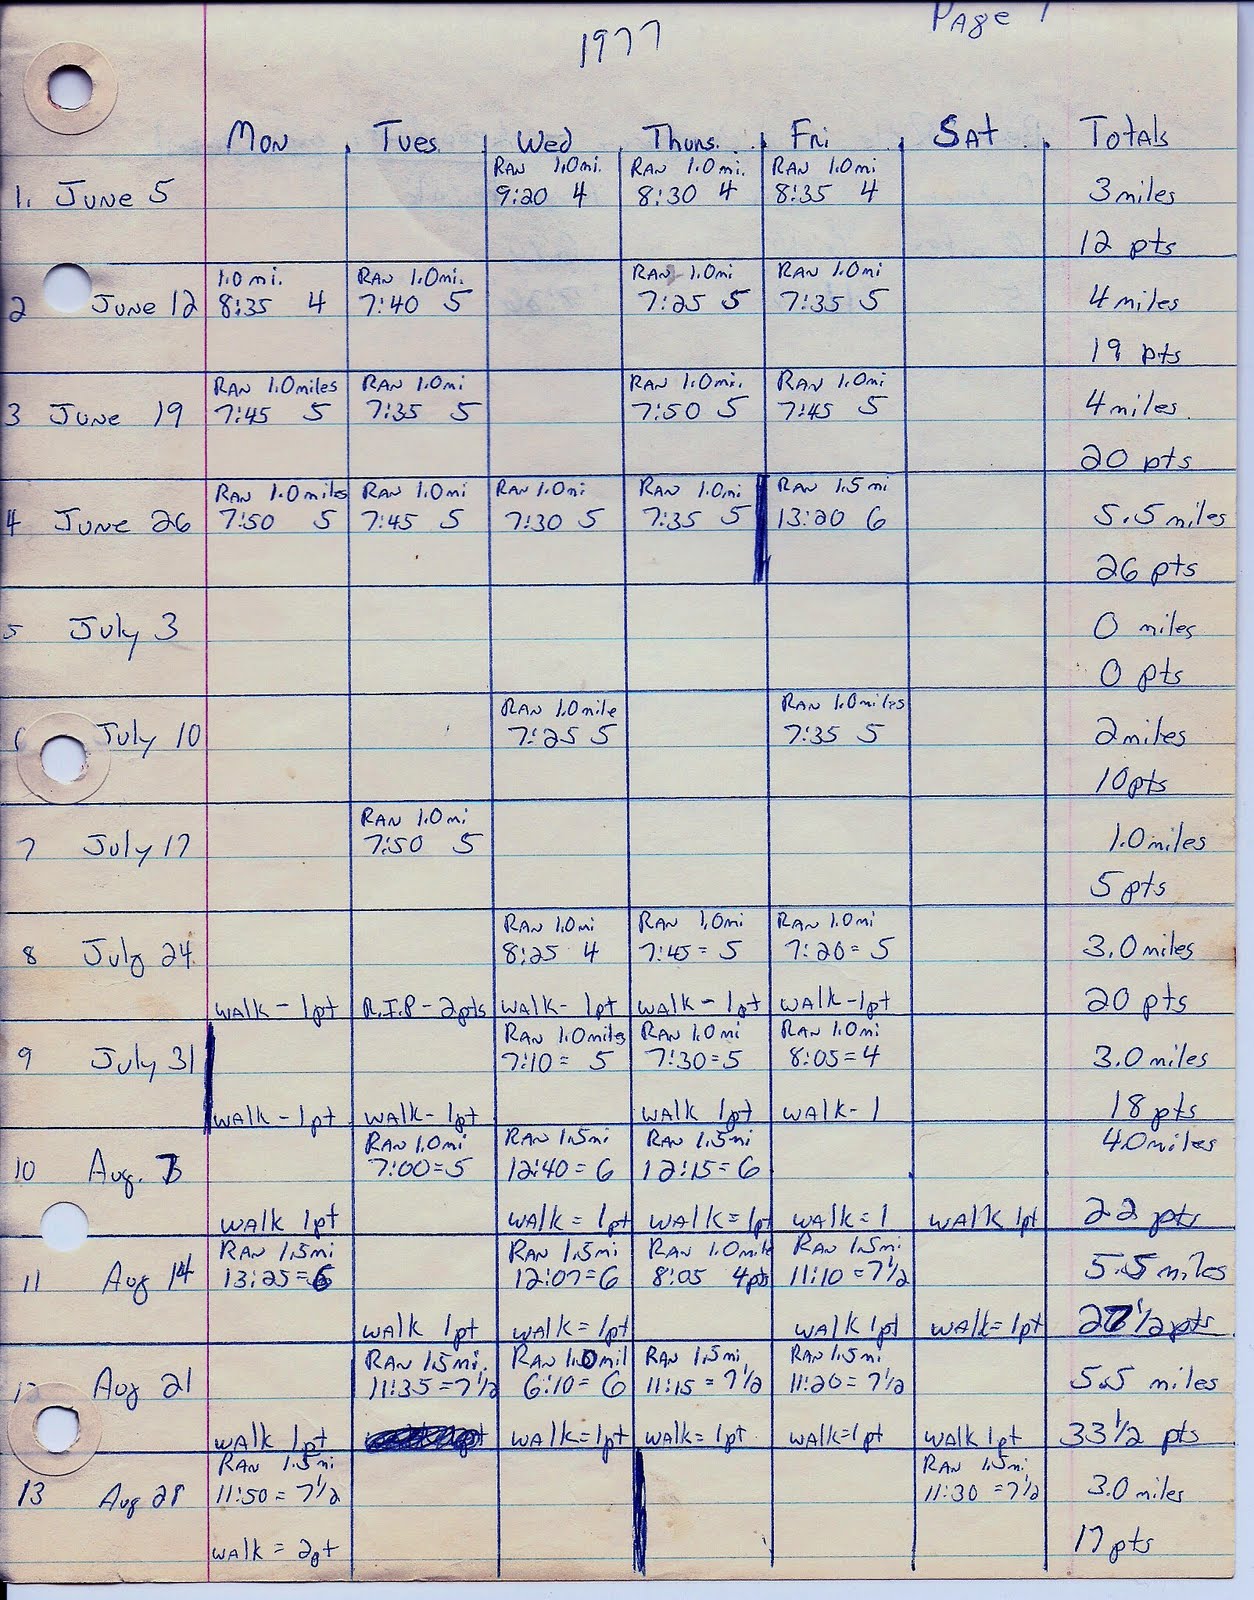 Page 1
1977
Mon Tues Wed Thurs. Fri SAT Totals
RAN 1.0mi. RAN 1.0mi. RAN 1.0mi
1. June 5 9:20 4 8:30 4 8:35 4 3 miles
12 pts
1.0 mi. RAN 1.0mi. RAN 1.0mi RAN 1.0mi
2 June 12 8:35 4 7:40 5 7:25 5 7:35 5 4 miles
19 pts
RAN 1.0miles RAN 1.0mi RAN 1.0mi. RAN 1.0mi
3 June 19 7:45 5 7:35 5 7:50 5 7:45 5 4 miles.
20 pts
RAN 1.0miles RAN 1.0mi RAN 1.0mi RAN 1.0mi RAN 1.5mi
4 June 26 7:50 5 7:45 5 7:30 5 7:35 5 13:20 6 5.5 miles
26 pts
5 July 3 0 miles
0 pts
RAN 1.0mile RAN 1.0miles
July 10 7:25 5 7:35 5 2 miles
10 pts
RAN 1.0mi
7 July 17 7:50 5 1.0 miles
5 pts
RAN 1.0mi RAN 1.0mi RAN 1.0mi
8 July 24 8:25 4 7:45 = 5 7:20 = 5 3.0 miles
WALK - 1pt R.I.P - 2pts WALK - 1pt WALK - 1pt WALK - 1pt 20 pts
RAN 1.0miles RAN 1.0mi RAN 1.0mi
9 July 31 7:10 = 5 7:30 = 5 8:05 = 4 3.0 miles
WALK - 1pt WALK - 1pt WALK 1pt WALK - 1 18 pts
RAN 1.0mi RAN 1.5mi RAN 1.5mi 4.0 miles
10 Aug. 7 7:00 = 5 12:40 = 6 12:15 = 6
WALK 1pt WALK = 1pt WALK = 1pt WALK = 1 WALK 1pt 22 pts
RAN 1.5mi RAN 1.5mi RAN 1.0mile RAN 1.5mi
11 Aug 14 13:25 = 6 12:07 = 6 8:05 4pts 11:10 = 7 1/2 5.5 miles
WALK 1pt WALK = 1pt WALK 1pt WALK = 1pt 27 1/2 pts
RAN 1.5mi. RAN 1.0mil RAN 1.5mi RAN 1.5mi
Aug 21 11:35 = 7 1/2 6:10 = 6 11:15 = 7 1/2 11:20 = 7 1/2 5.5 miles
WALK 1pt WALK = 1pt WALK = 1pt WALK = 1pt WALK 1pt 33 1/2 pts
RAN 1.5mi RAN 1.5mi
13 Aug 28 11:50 = 7 1/2 11:30 = 7 1/2 3.0 miles
WALK = 2pt 17 pts